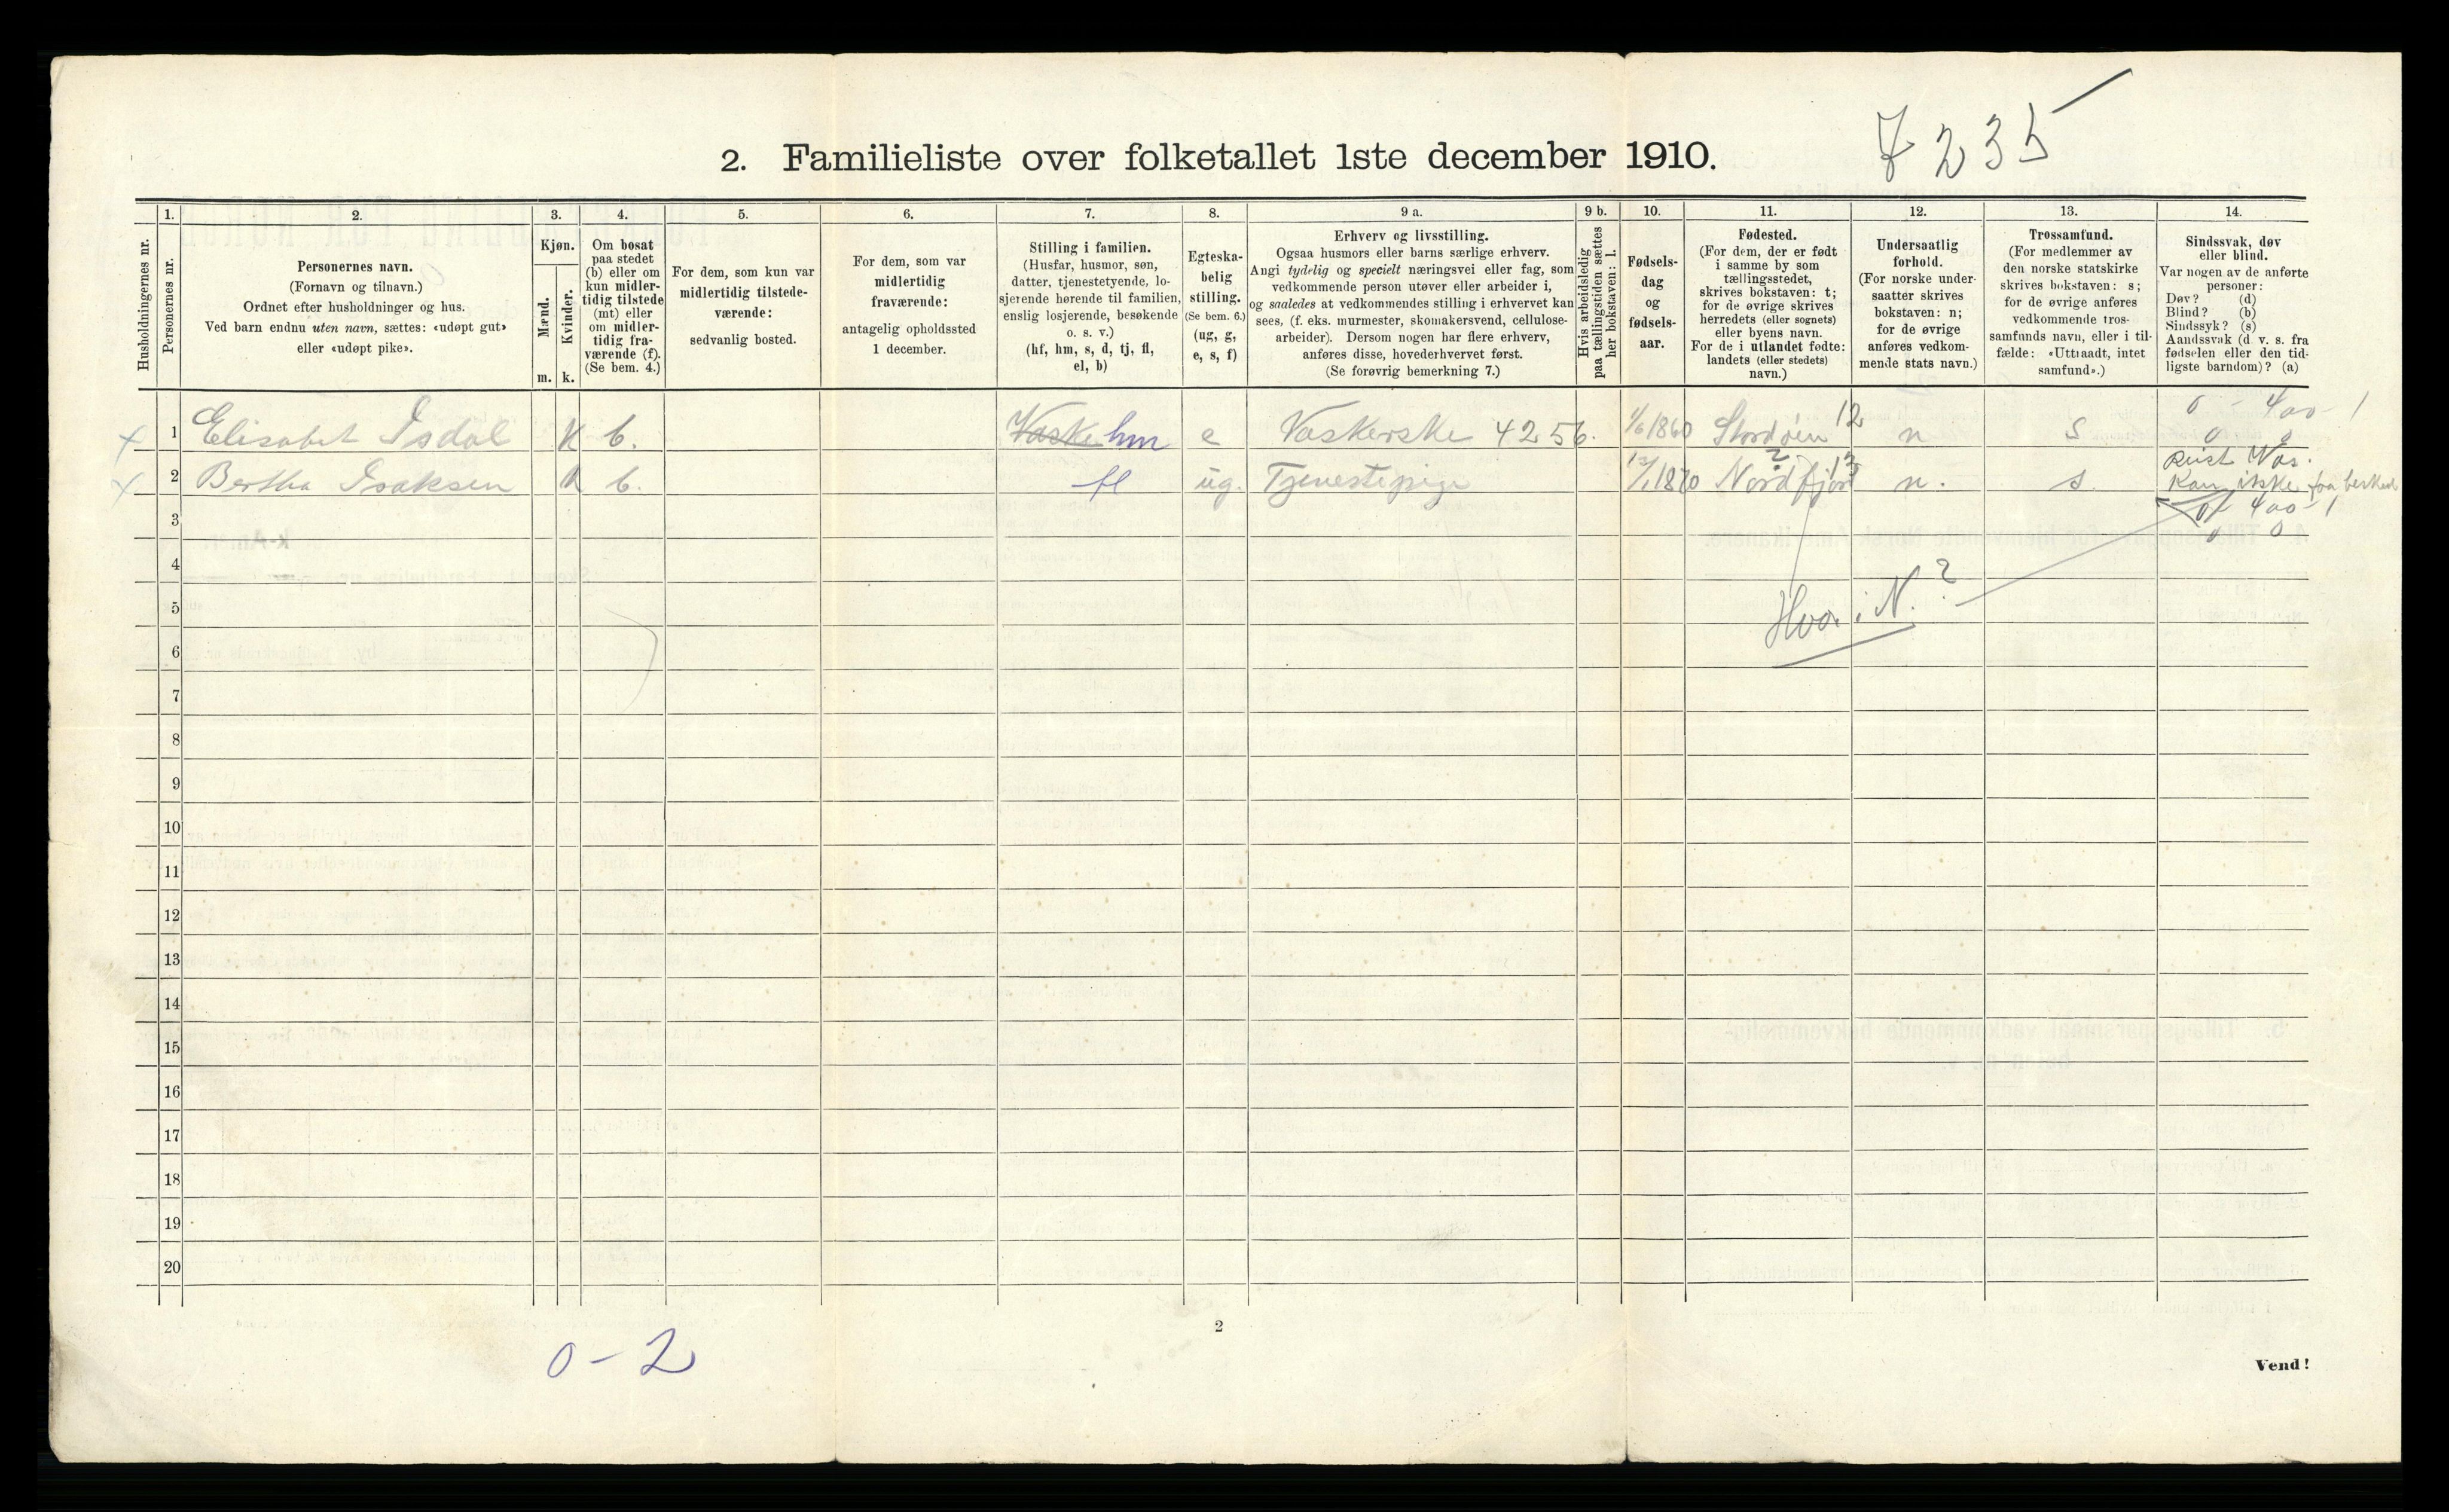 7235
2. Familieliste over folketallet 1ste december 1910.
Husholdningernes nr.
1.
Personernes nr.
2.
Personernes navn.
(Fornavn og tilnavn.)
Ordnet efter husholdninger og hus.
Ved barn endnu uten navn, sættes: «udøpt gut»
eller «udøpt pike».
3.
Kjøn.
Mænd.
Kvinder.
m. k.
4.
Om bosat
paa stedet
(b) eller om
kun midler-
tidig tilstede
(mt) eller
om midler-
tidig fra-
værende (f).
(Se bem. 4.)
5.
For dem, som kun var
midlertidig tilstede-
værende:
sedvanlig bosted.
6.
For dem, som var
midlertidig
fraværende:
antagelig opholdssted
1 december.
7.
Stilling i familien.
(Husfar, husmor, søn,
datter, tjenestetyende, lo-
sjerende hørende til familien,
enslig losjerende, besøkende
o. s. v.)
(hf, hm, s, d, tj, fl,
el, b)
8.
Egteska-
belig
stilling.
(Se bem. 6.)
(ug, g,
e, s, f)
9 a.
Erhverv og livsstilling.
Ogsaa husmors eller barns særlige erhverv.
Angi tydelig og specielt næringsvei eller fag, som
vedkommende person utøver eller arbeider i,
og saaledes at vedkommendes stilling i erhvervet kan
sees, (f. eks. murmester, skomakersvend, cellulose-
arbeider). Dersom nogen har flere erhverv,
anføres disse, hovederhvervet først.
(Se forøvrig bemerkning 7.)
9 b.
Hvis arbeidsledig
paa tællingstiden sættes
her bokstaven: l.
10.
Fødsels-
dag
og
fødsels-
aar.
11.
Fødested.
(For dem, der er født
i samme by som
tællingsstedet,
skrives bokstaven: t;
for de øvrige skrives
herredets (eller sognets)
eller byens navn.
For de i utlandet fødte:
landets (eller stedets)
navn.)
12.
Undersaatlig
forhold.
(For norske under-
saatter skrives
bokstaven: n;
for de øvrige
anføres vedkom-
mende stats navn.)
13.
Trossamfund.
(For medlemmer av
den norske statskirke
skrives bokstaven: s;
for de øvrige anføres
vedkommende tros-
samfunds navn, eller i til-
fælde: «Uttraadt, intet
samfund».)
14.
Sindssvak, døv
eller blind.
Var nogen av de anførte
personer:
Døv? (d)
Blind? (b)
Sindssyk? (s)
Aandssvak (d. v. s. fra
fødselen eller den tid-
ligste barndom)? (a)
x 1 Elisabet Isdal K b. Vaske hm e Vaskerske 4256. 1/6 1860 Stordøen 12 n S 0 - 400 - 1
0 0
x 2 Bertha Isaksen K b. fl ug. Tjenestepige 13/1 1870 Nordfjord ? 13 n. s.
Kan ikke faa besked
0/ 400-1
0 0
Hvor i N.?
3
4
5
6
7
8
9
10
11
12
13
14
15
16
17
18
19
20
0-2
2
Vend!